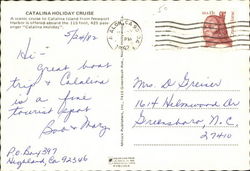 CATALINA HOLIDAY CRUISE
A scenic cruise to Catalina Island from Newport
Harbor is offered aboard the 115 foot, 425 pass-
enger "Catalina Holiday".
5/24/82
Hi -
Great boat
trip & Catalina
is a fine
tourist spot
Bob & Mary
P.O. Box 1397
Highland, Ca 92346
Mrs. D Greiser
1614 Helmwood Dr
Greensboro, N.C.
27410